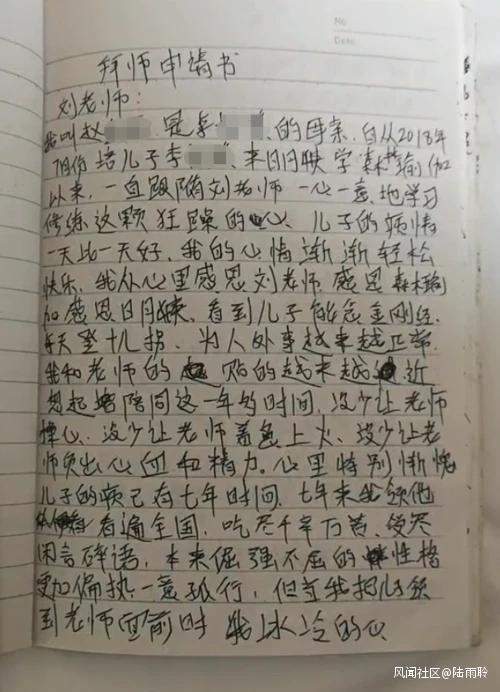 No
Date
拜师申请书
刘老师:
我叫赵 是李 的母亲,自从2018年
7月份 培儿子李 来日月映 学森林瑜伽
以来,一直跟随刘老师一心一意地学习
修练这颗狂躁的心、儿子的病情
一天比一天好,我的心情渐渐轻松
快乐,我从心里感恩刘老师 感恩森林瑜
加感恩日月映、看到儿子能念金刚经、
每天登十八拐、为人处事越来越正常
我和老师的 贴的越来越 近
想起 陪同这一年多时间,没少让老师
操心、没少让老师着急上火、没少让老
师负出心血和精力。心里特别惭愧
儿子的病已有七年时间,七年来我领他
看遍全国,吃尽千辛万苦、受尽
闲言碎语,本来倔强不屈的 性格
更加偏执一意孤行,但当我把儿子领
到老师面前时 我冰冷的心
风闻社区@陆雨聆